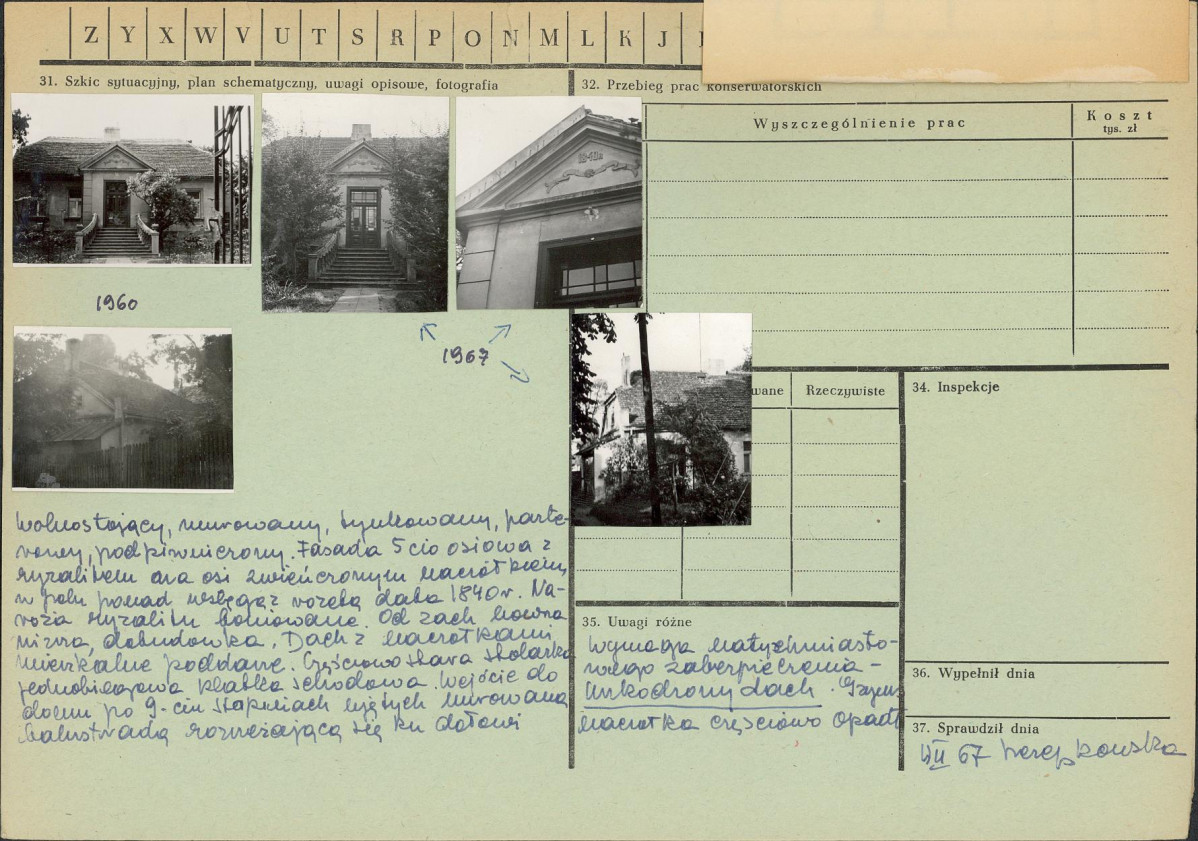 Z Y X W V U T S R P O N M L K J
31. Szkic sytuacyjny, plan schematyczny, uwagi opisowe, fotografia
1840r
1960
1967
Wolnostojący, murowany, tynkowany, parte-
rowy, podpiwniczony. Fasada 5cio osiowa z
ryzalitem na osi zwieńczonym naczółkiem,
w polu ponad wstęgą rzeźb. data 1840 r. Na-
roża ryzalitu boniowane. Od zach nowna
niższa, dobudówka. Dach z naczółkami
mieszkalne poddasze. Częściowo stara stolarka
jednobiegowa klatka schodowa. Wejście do
domu po 9-ciu stopniach ujętych murowaną
balustradą rozszerzającą się ku dołowi
32. Przebieg prac konserwatorskich
Wyszczególnienie prac
Koszt
tys. zł
wane
Rzeczywiste
34. Inspekcje
35. Uwagi różne
Wymaga natychmiasto-
wego zabezpieczenia -
uszkodzony dach. Gzyms
naczółka częściowo opadł
36. Wypełnił dnia
37. Sprawdził dnia
VII 67